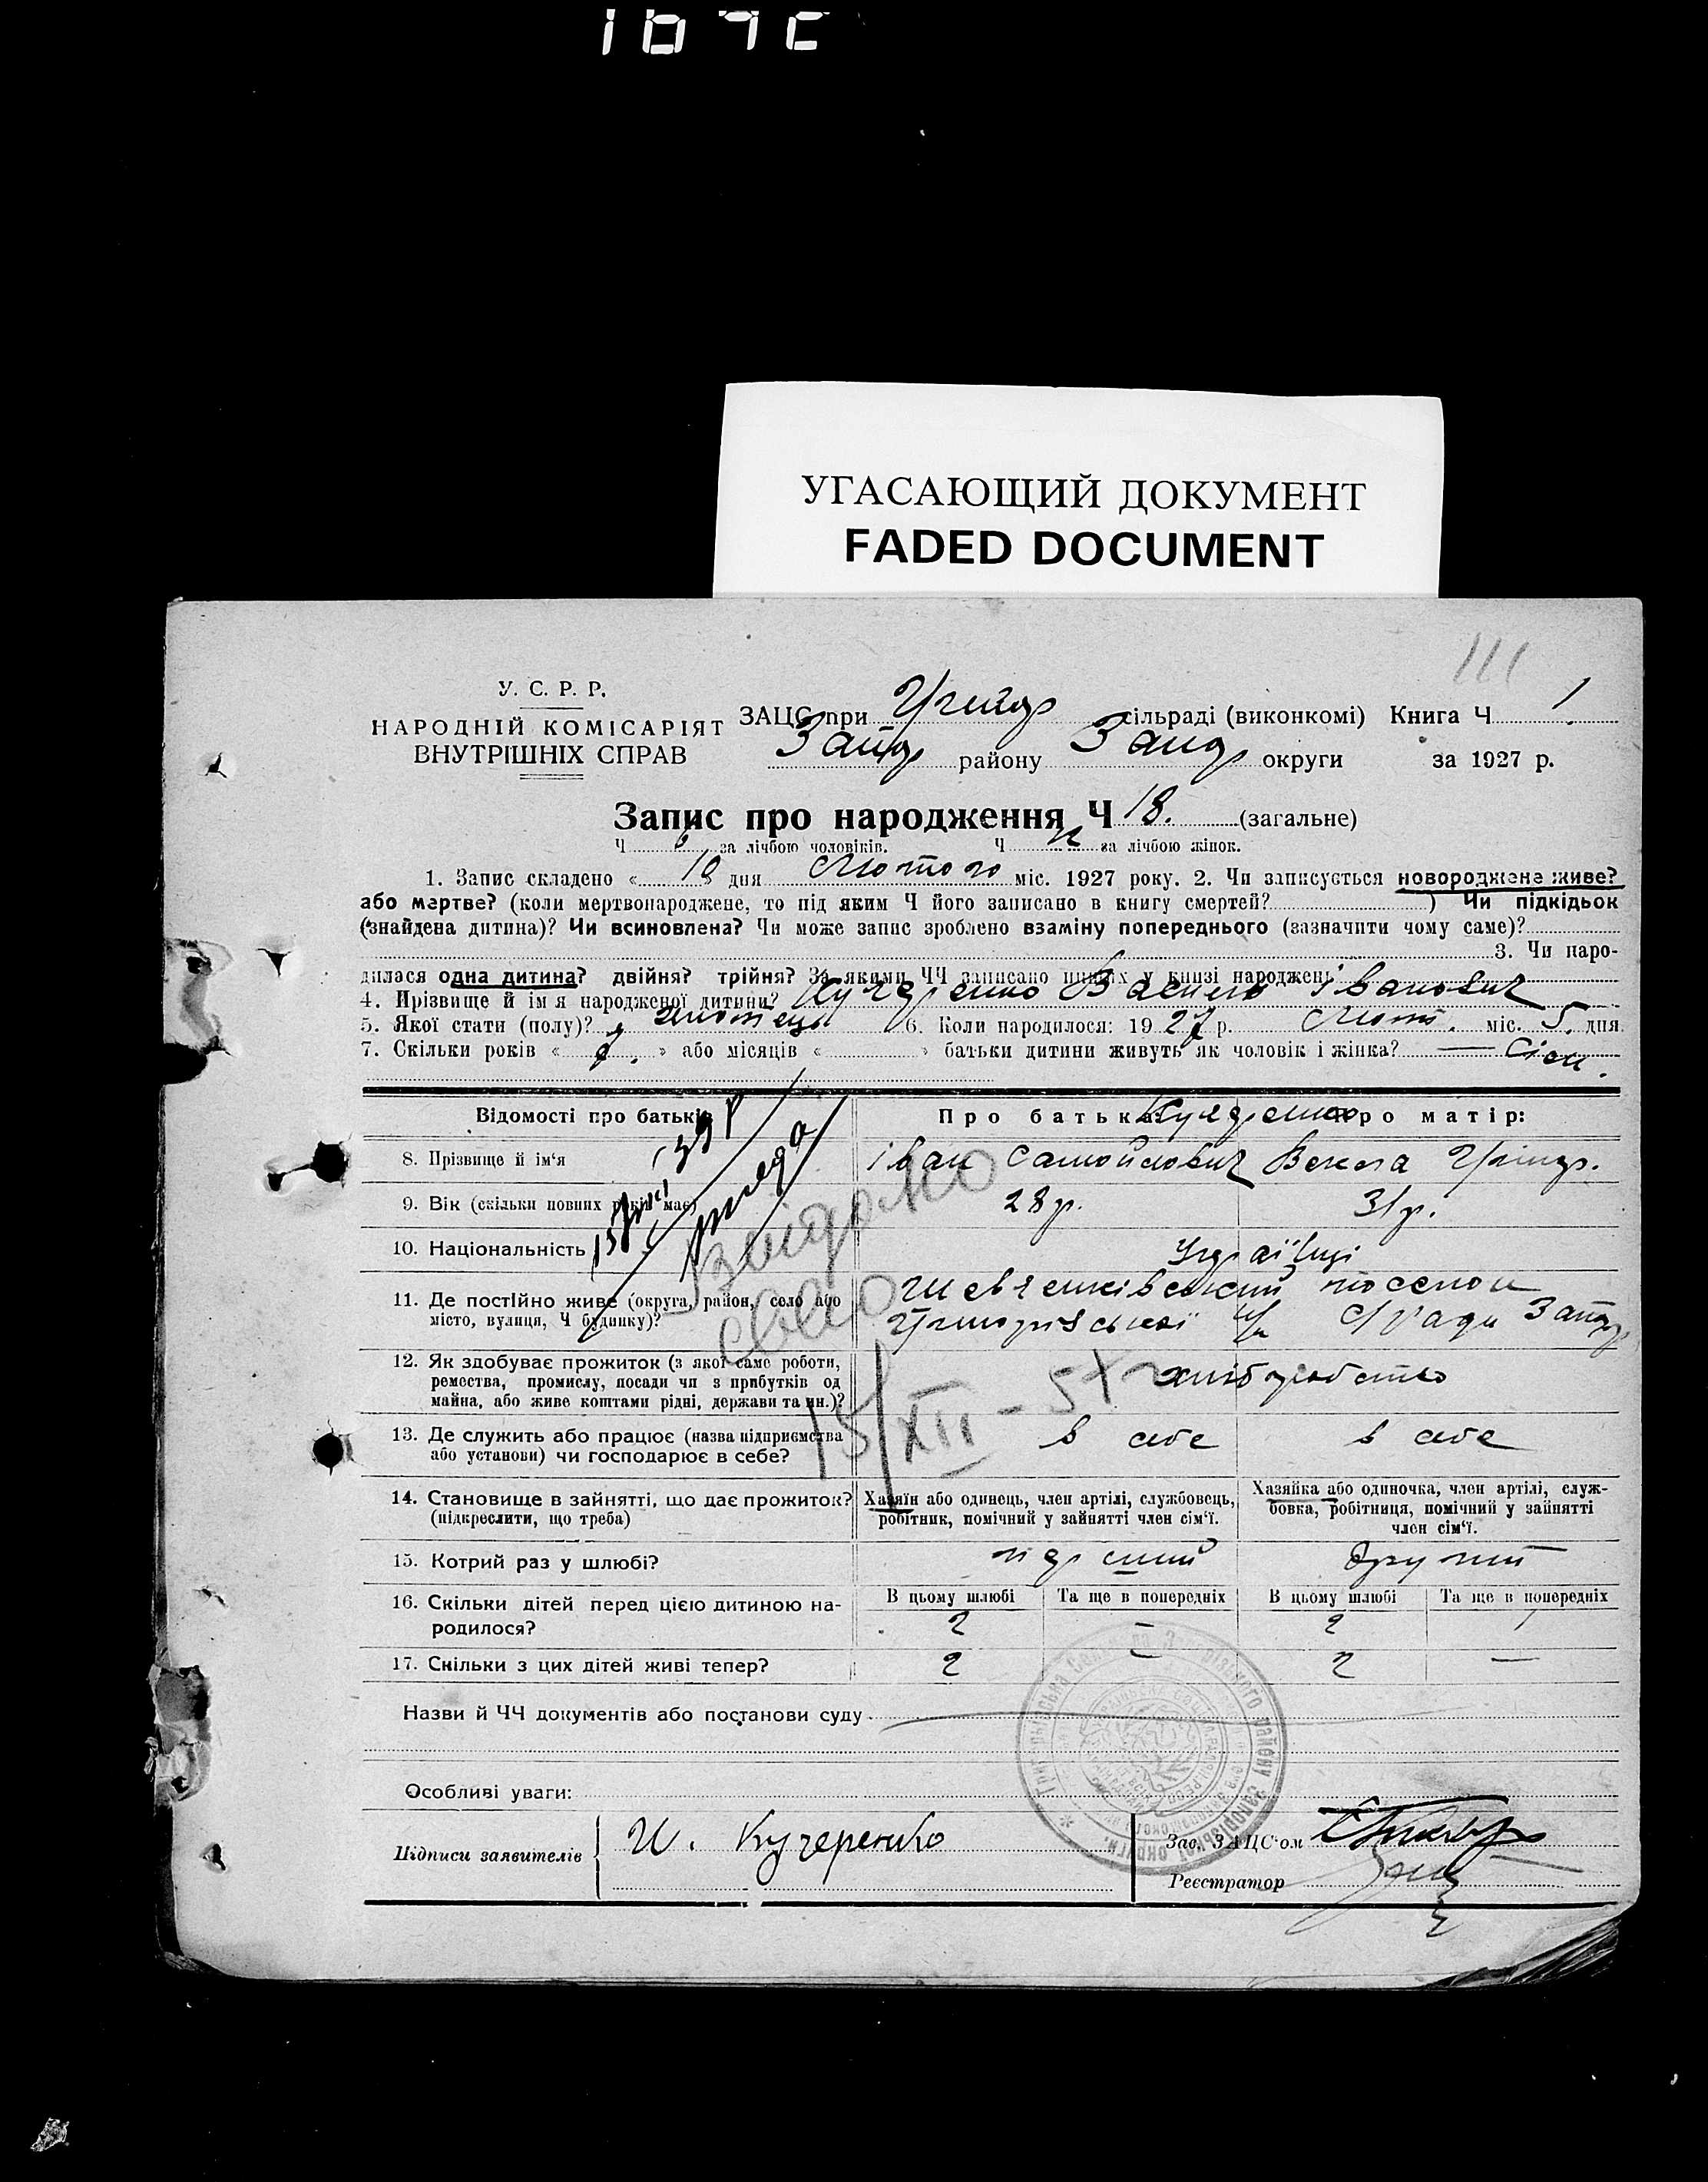 УГАСАЮЩИЙ ДОКУМЕНТ
FADED DOCUMENT
111
У. С. Р. Р.
НАРОДНІЙ КОМІСАРІЯТ
ВНУТРІШНІХ СПРАВ
ЗАЦС при Григор сільраді (виконкомі) Книга Ч 1
Запор району Запор округи за 1927 р.
Запис про народження Ч 18. (загальне)
Ч 6 за лічбою чоловіків. Ч за лічбою жінок.
1. Запис складено « 10 » дня Лютого міс. 1927 року. 2. Чи записується новороджене живе?
або мертве? (коли мертвонароджене, то під яким Ч його записано в книгу смертей? ) Чи підкідьок
(знайдена дитина)? Чи всиновлена? Чи може запис зроблено взаміну попереднього (зазначити чому саме)?
3. Чи наро-
дилася одна дитина? двійня? трійня? За якими ЧЧ записано інших у книзі народжень
4. Прізвище й ім'я народженої дитини? Кучеренко Василь Іванович
5. Якої стати (полу)? 6. Коли народилося: 1927 р. Лют. міс. 5. дня
7. Скільки років « 7. » або місяців « » батьки дитини живуть як чоловік і жінка? — Сім.
Відомості про батьків Про батька: Кучеренко Про матір:
8. Прізвище й ім'я Іван Самойлович Векла Григор.
9. Вік (скільки повних років має) 28 р. 31 р.
10. Національність Українці
11. Де постійно живе (округа, район, село або
місто, вулиця, Ч будинку)? Шевченківський поселок
Григорівської с/ради Запор
12. Як здобуває прожиток (з якої саме роботи,
ремества, промислу, посади чи з прибутків од
майна, або живе коштами рідні, держави та ин.)? хліборобство
13. Де служить або працює (назва підприємства
або установи) чи господарює в себе? в себе в себе
14. Становище в зайнятті, що дає прожиток?
(підкреслити, що треба)
Хазяїн або одинець, член артілі, службовець,
робітник, помічний у зайнятті член сім'ї.
Хазяйка або одиночка, член артілі, служ-
бовка, робітниця, помічний у зайнятті
член сім'ї.
15. Котрий раз у шлюбі? перший другий
16. Скільки дітей перед цією дитиною на-
родилося?
В цьому шлюбі Та ще в попередніх В цьому шлюбі Та ще в попередніх
2 — 2 1
17. Скільки з цих дітей живі тепер? 2 — 2 —
Видано
свво
15/XII-51
Назви й ЧЧ документів або постанови суду
Особливі уваги:
Підписи заявителів И. Кучеренко
Зав. ЗАЦС'ом
Реєстратор